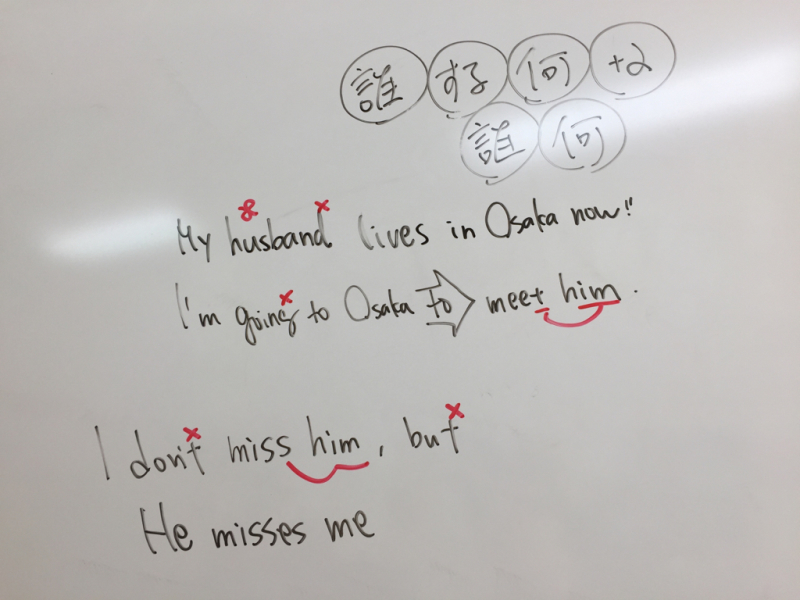 誰 する 何 +α
誰 何
My husband lives in Osaka now!!
I'm going to Osaka to meet him.
I don't miss him, but
He misses me